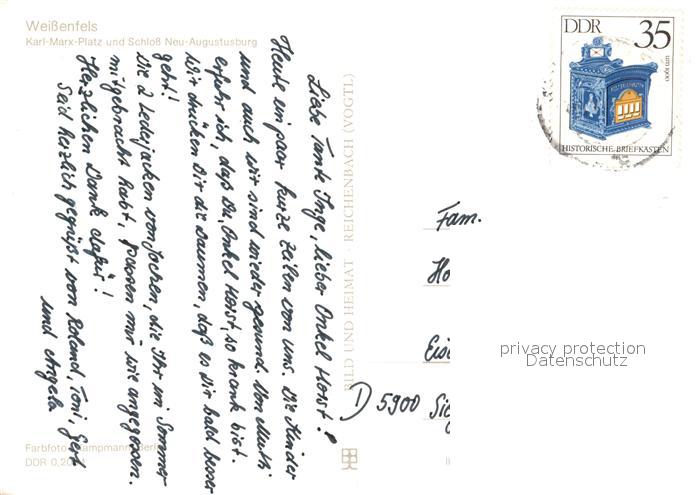 Weißenfels
Karl-Marx-Platz und Schloß Neu-Augustusburg
Liebe Tante Inge, lieber Onkel Horst!
Heute ein paar kurze Zeilen von uns. Die Kinder
und auch wir sind wieder gesund. Von Mutti
erfuhr ich, daß Du, Onkel Horst, so krank bist.
Wir drücken Dir die Daumen, daß es Dir bald besser
geht!
Die 2 Lederjacken von Jochen, die Ihr im Sommer
mitgebracht habt, passen mir wie angegossen.
Herzlichen Dank dafür!
Seid herzlich gegrüßt von Roland, Toni, Gert
und Angela
Farbfoto
DDR 0,20
BILD UND HEIMAT · REICHENBACH (VOGTL)
DDR 35
um 1900
HISTORISCHE BRIEFKÄSTEN
Fam.
Ho
Eis
D 5900 Sie
privacy protection
Datenschutz